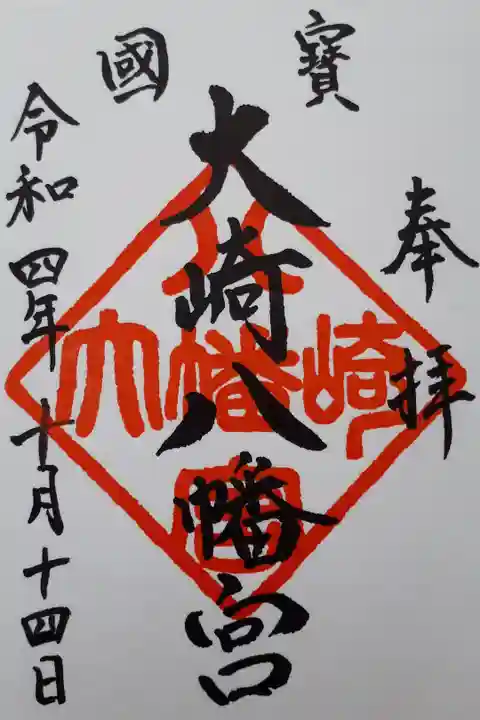 國寶
奉拝
大崎八幡宮
令和四年十月十四日
大
八幡宮
崎